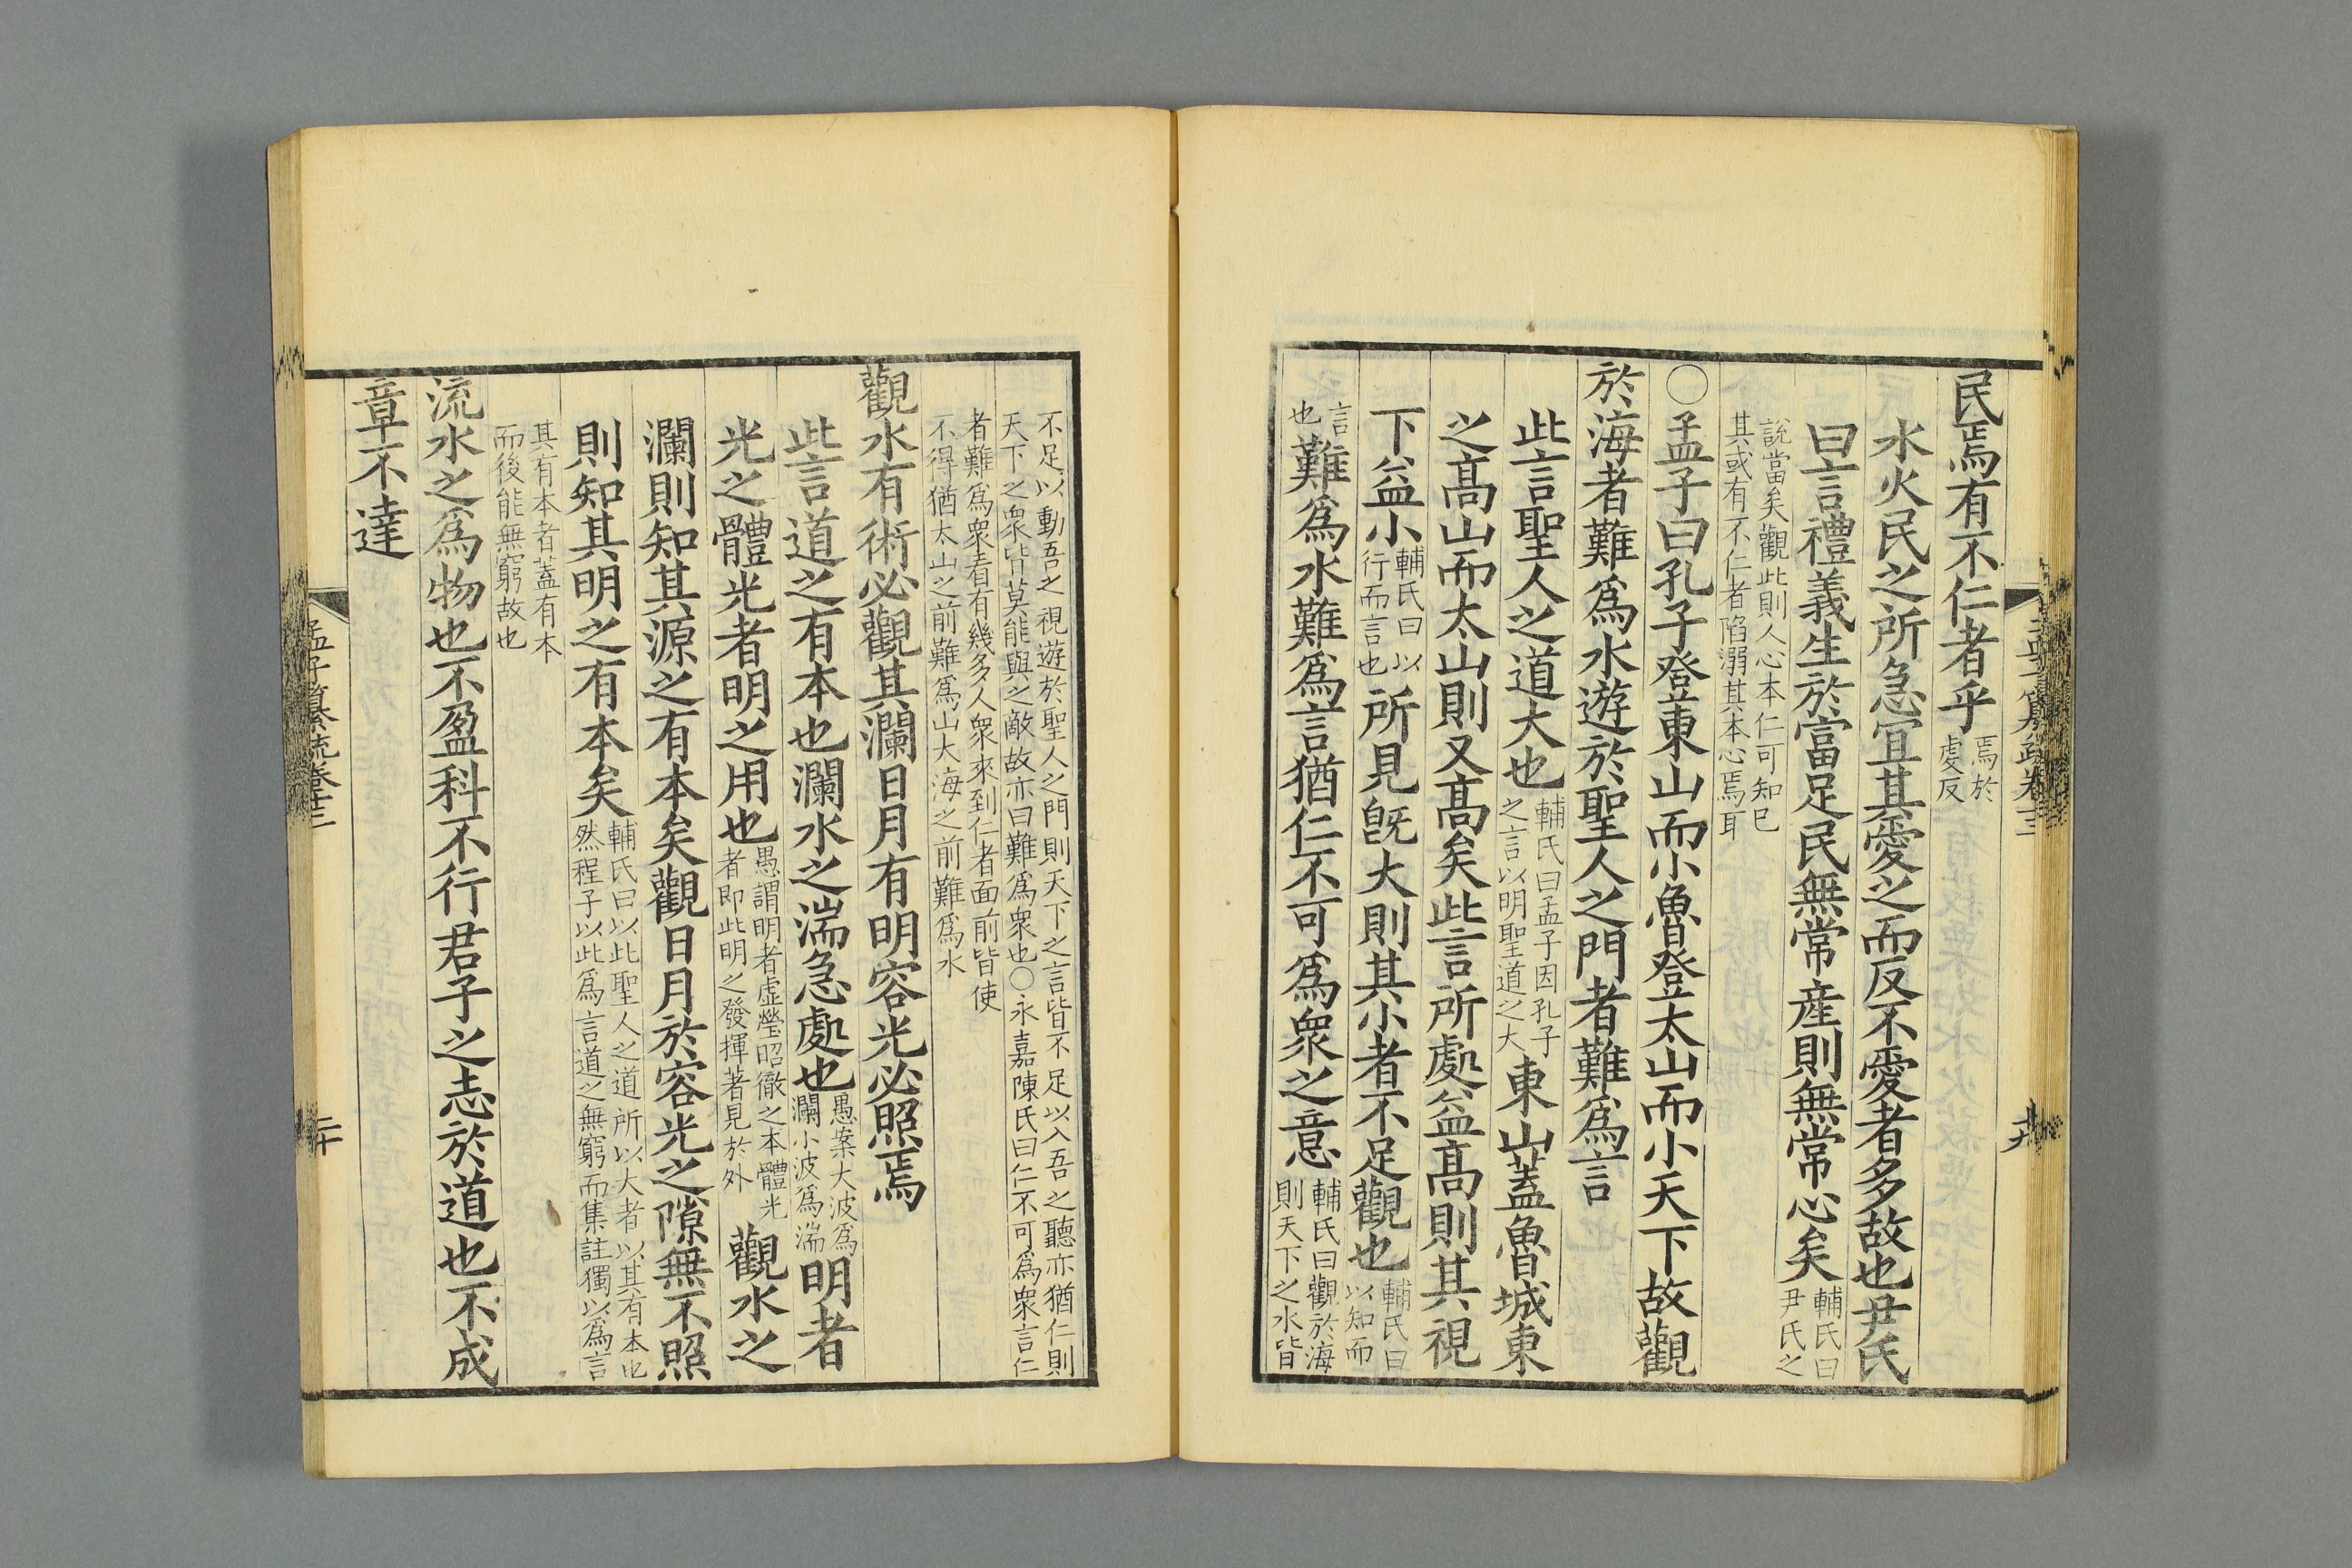 民焉有不仁者乎焉於處反
水火民之所急宜其愛之而反不愛者多故也尹氏
曰言禮義生於富足民無常産則無常心矣輔氏曰尹氏之
說當矣觀此則人心本仁可知已
其或有不仁者陷溺其本心焉耳
○孟子曰孔子登東山而小魯登太山而小天下故觀
於海者難爲水遊於聖人之門者難爲言
此言聖人之道大也輔氏曰孟子因孔子之言以明聖道之大東山蓋魯城東
之髙山而太山則又髙矣此言所處益髙則其視
下益小輔氏曰以行而言也所見旣大則其小者不足觀也輔氏曰以知而
言也難爲水難爲言猶仁不可爲衆之意輔氏曰觀於海則天下之水皆
不足以動吾之視遊於聖人之門則天下之言皆不足以入吾之聽亦猶仁則
天下之衆皆莫能與之敵故亦曰難爲衆也○永嘉陳氏曰仁不可爲衆言仁
者難爲衆看有幾多人衆來到仁者面前皆使
不得猶太山之前難爲山大海之前難爲水
觀水有術必觀其瀾日月有明容光必照焉
此言道之有本也瀾水之湍急處也愚案大波爲瀾小波爲湍明者
光之體光者明之用也愚謂明者虛瑩昭徹之本體光者即此明之發揮著見於外觀水之
瀾則知其源之有本矣觀日月於容光之隙無不照
則知其明之有本矣輔氏曰以此聖人之道所以大者以其有本也然程子以此爲言道之無窮而集註獨以爲言
其有本者蓋有本
而後能無窮故也
流水之爲物也不盈科不行君子之志於道也不成
章不達
孟子纂疏卷十三
二十